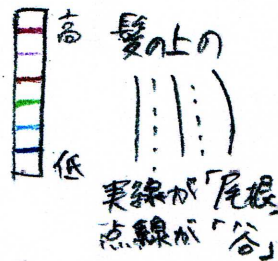 高
低
髪の上の
実線が「尾根」
点線が「谷」